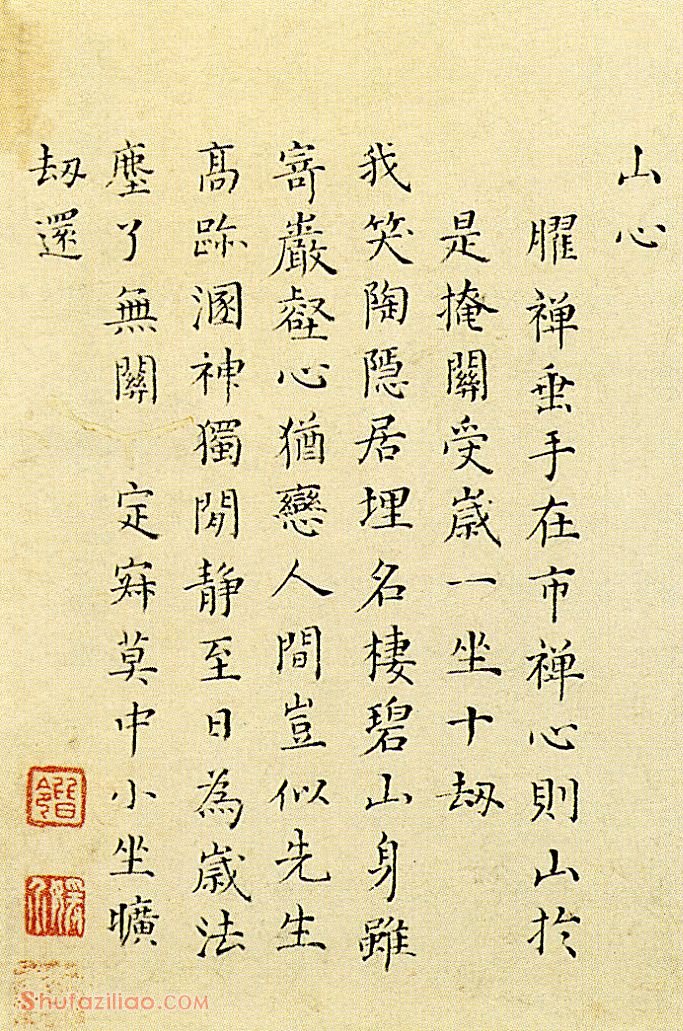 山心
臞禅垂手在市禅心則山於
是掩關受歲一坐十刼
我笑陶隱居埋名棲碧山身雖
寄巖壑心猶戀人間豈似先生
髙跡溷神獨閒靜至日為歲法
塵了無關 定寂莫中小坐曠
刼還
Shufaziliao.COM